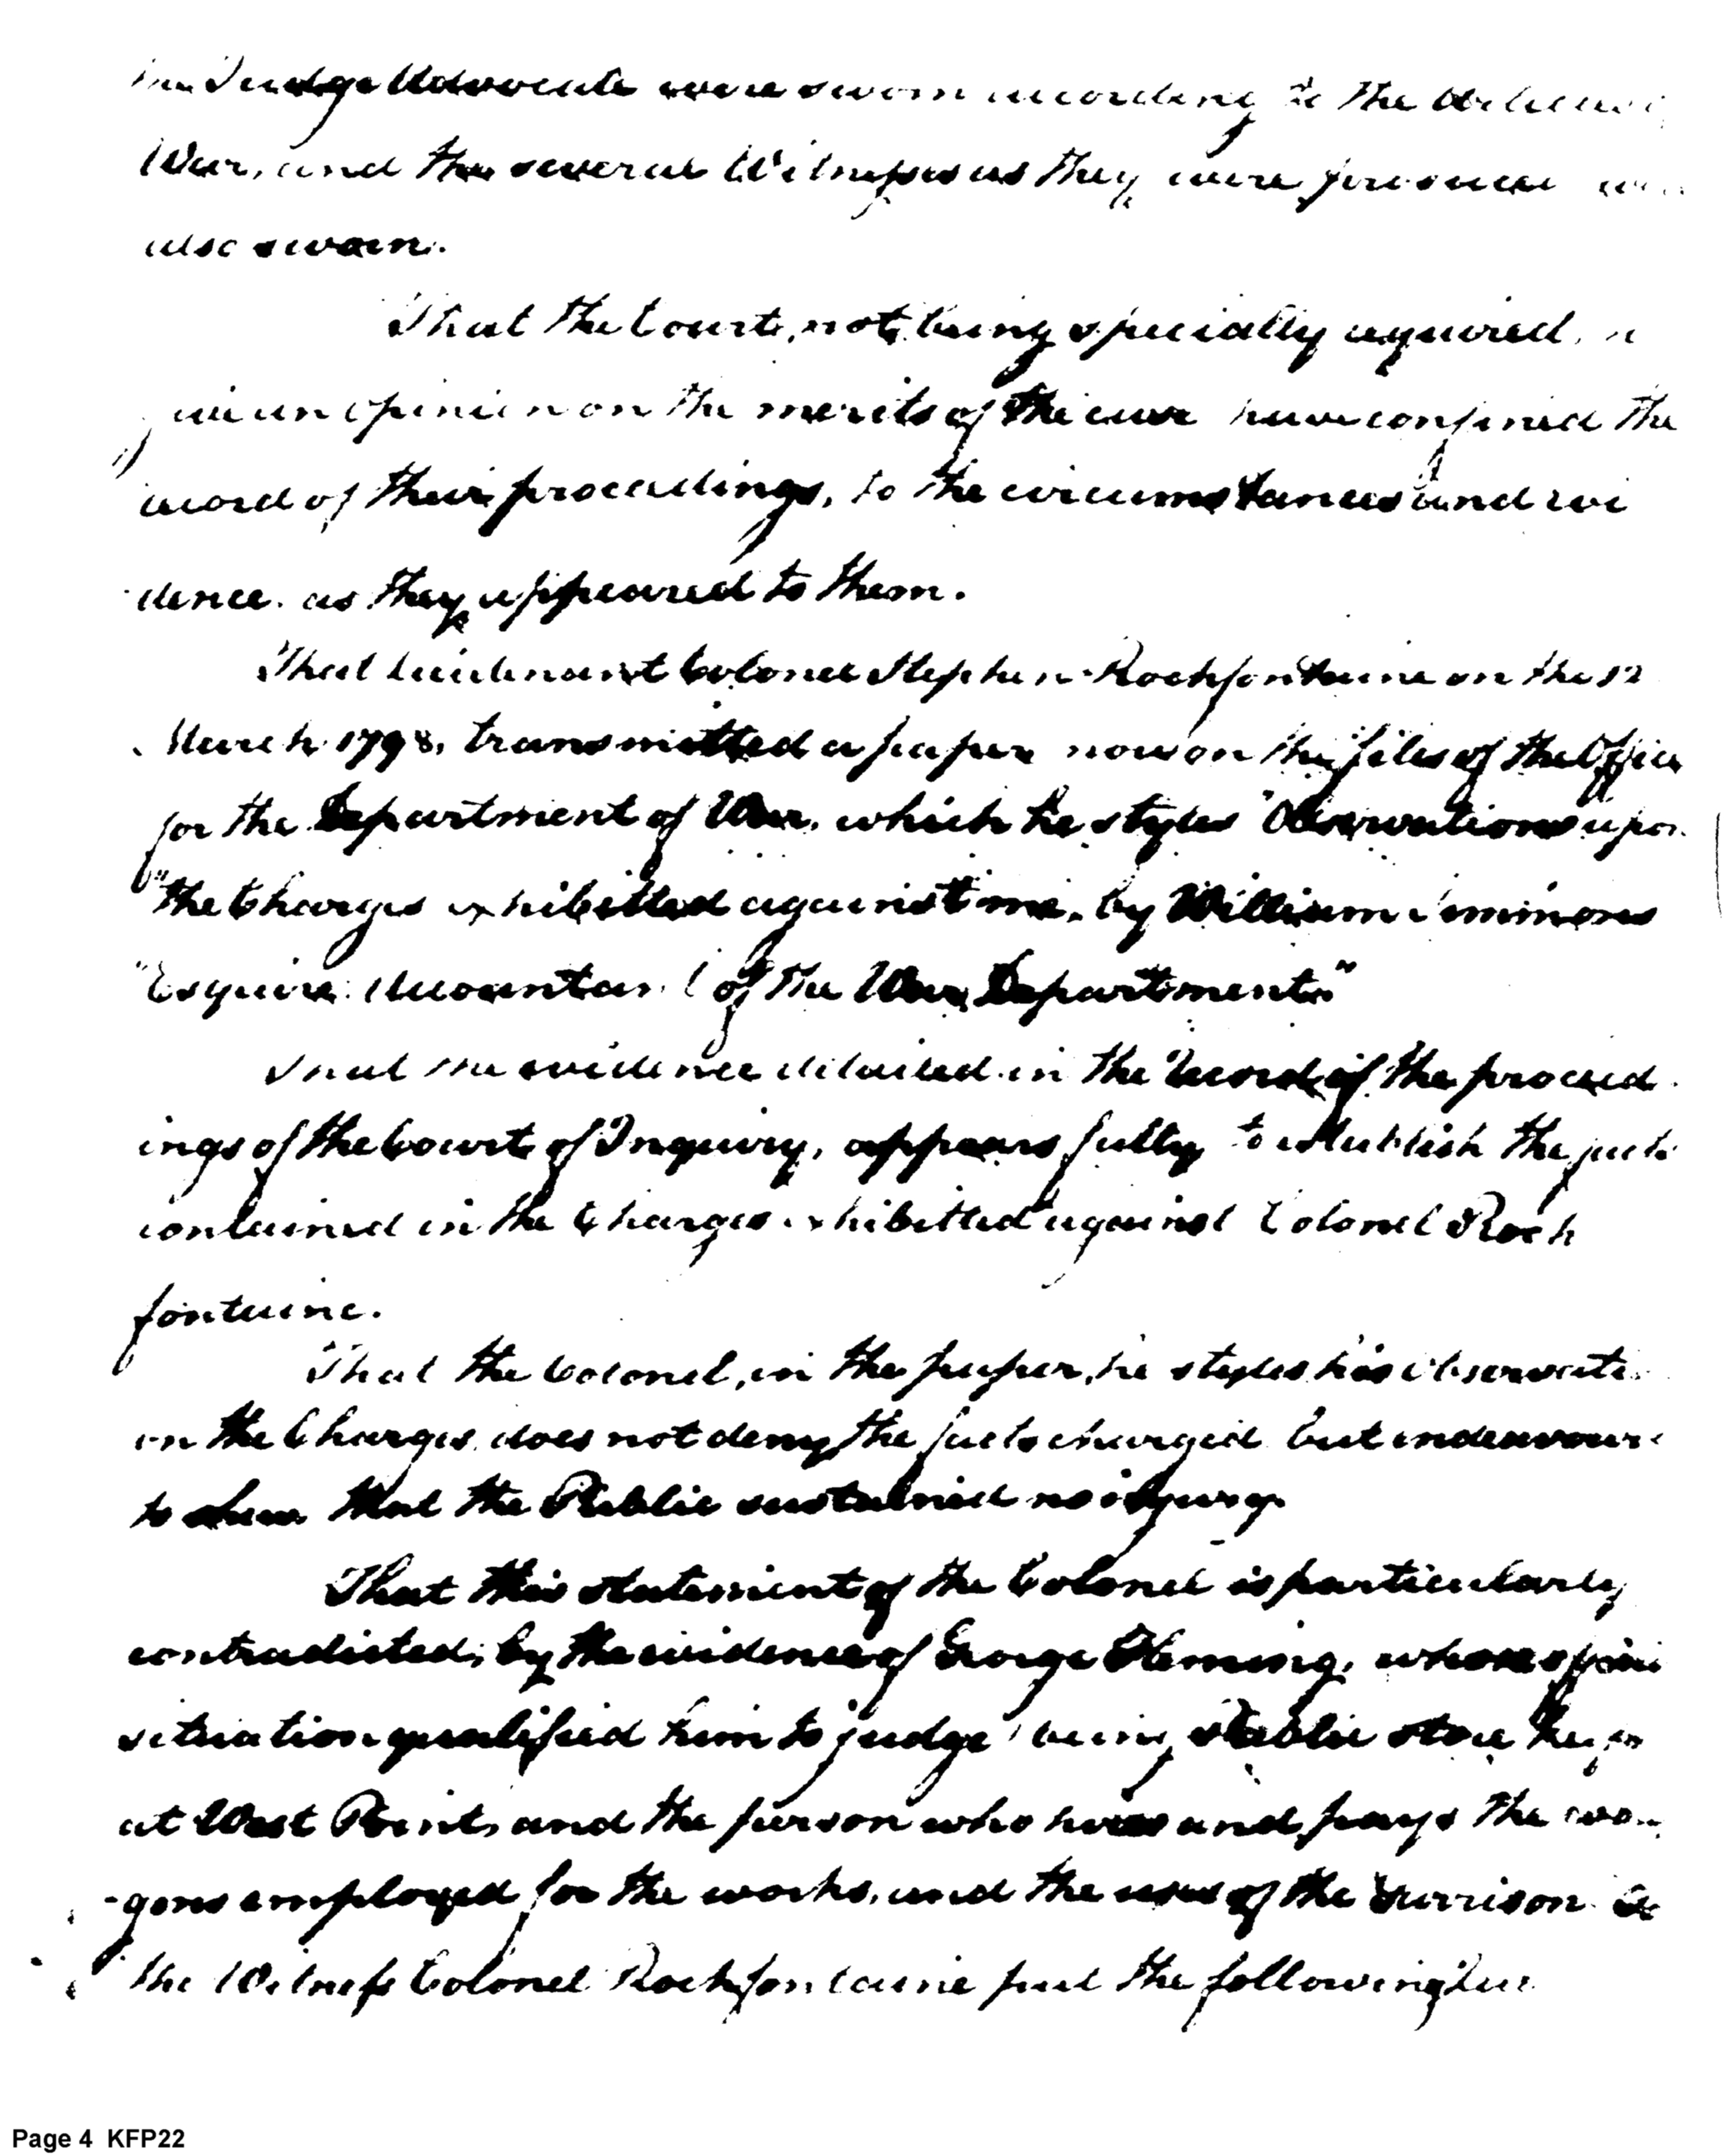 the Judge Advocate were sworn according to the Articles
War, and the several Witnesses as they were produced
also sworn.
That the Court, not being specially required,
give an opinion on the merits of the case have confined the
record of their proceedings, to the circumstances and evi
dence. as they appeared to them.
That Lieutenant Colonel Stephen Rochfontaine on the 12
March 1798, transmitted a paper now on the files of the Office
for the Department of War, which he styles "Observations upon
"the Charges exhibitted against me, by William Simmons
"Esquire Accountant of the War Department"
That the evidence detailed in the Record of the proceed
ings of the Court of Inquiry, appears fully to establish the facts
contained in the Charges exhibitted against Colonel Roch
fontaine.
That the Colonel, in the paper, he styles his observati
on the Charges, does not deny the facts charged but endeavours
to shew that the Public sustained no injury
That this statement of the Colonel is particularly
contradicted, by the evidence of George Fleming, whose
situation qualified him to judge being Public store keeper
at West Point, and the person who hires and pays the wa
-gons employed for the works, and the uses of the Garrison. To
the Witness Colonel Rochfontaine put the following
Page 4 KFP22